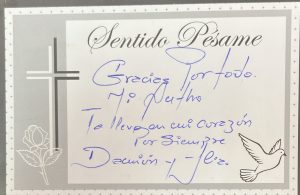 Sentido Pésame
Gracias por todo.
Mi
Te llevo en mi corazón
Por siempre
Damión y